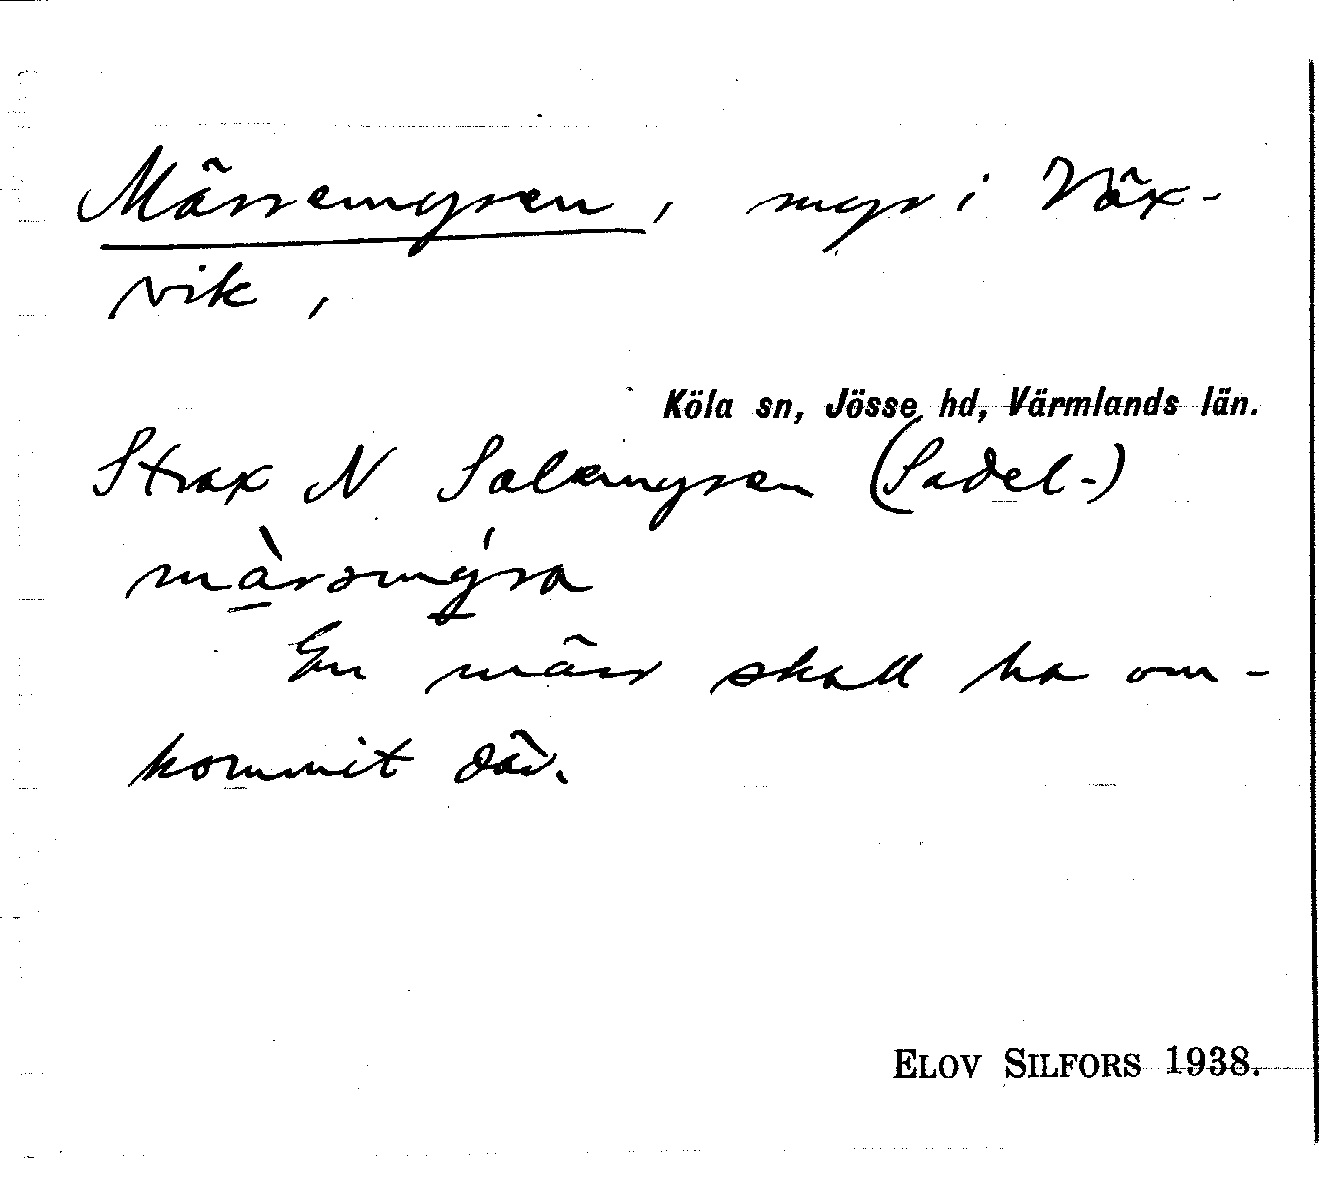 Märremyren, myr i Växvik,
Köla sn, Jösse hd, Värmlands län.
Strax N Salemyren (Sadel-)
mὰrəmýra
En märr skall ha om-
kommit där.
ELOV SILFORS 1938.